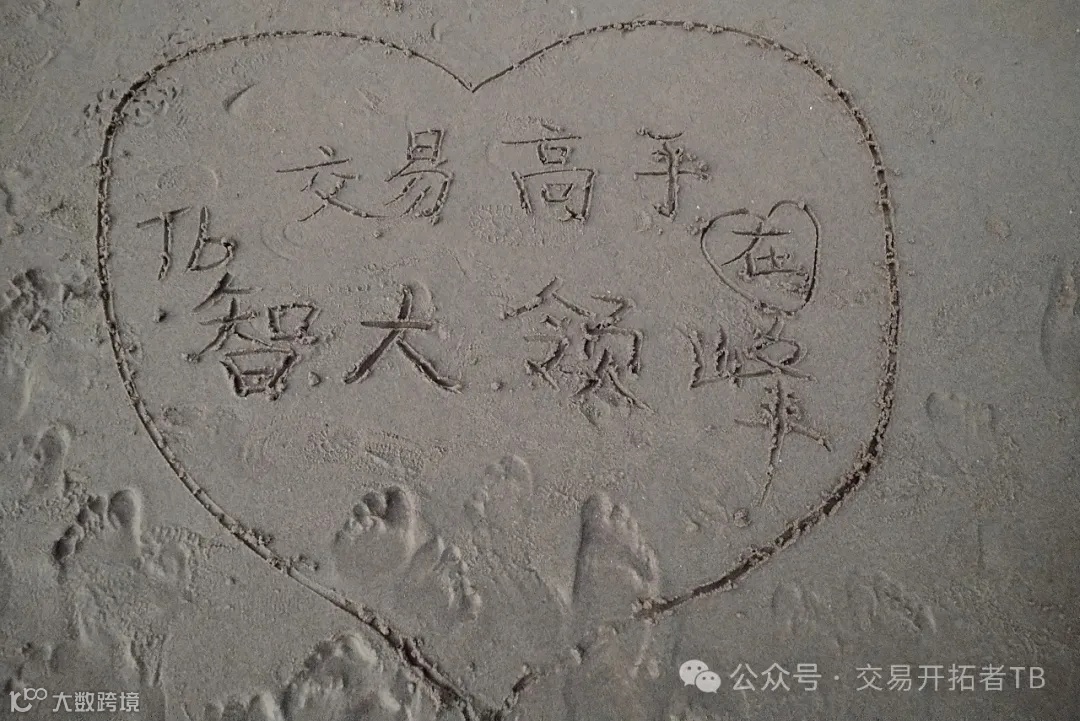 交易高手
Tb 在
智大领峰
公众号 · 交易开拓者TB
大数跨境